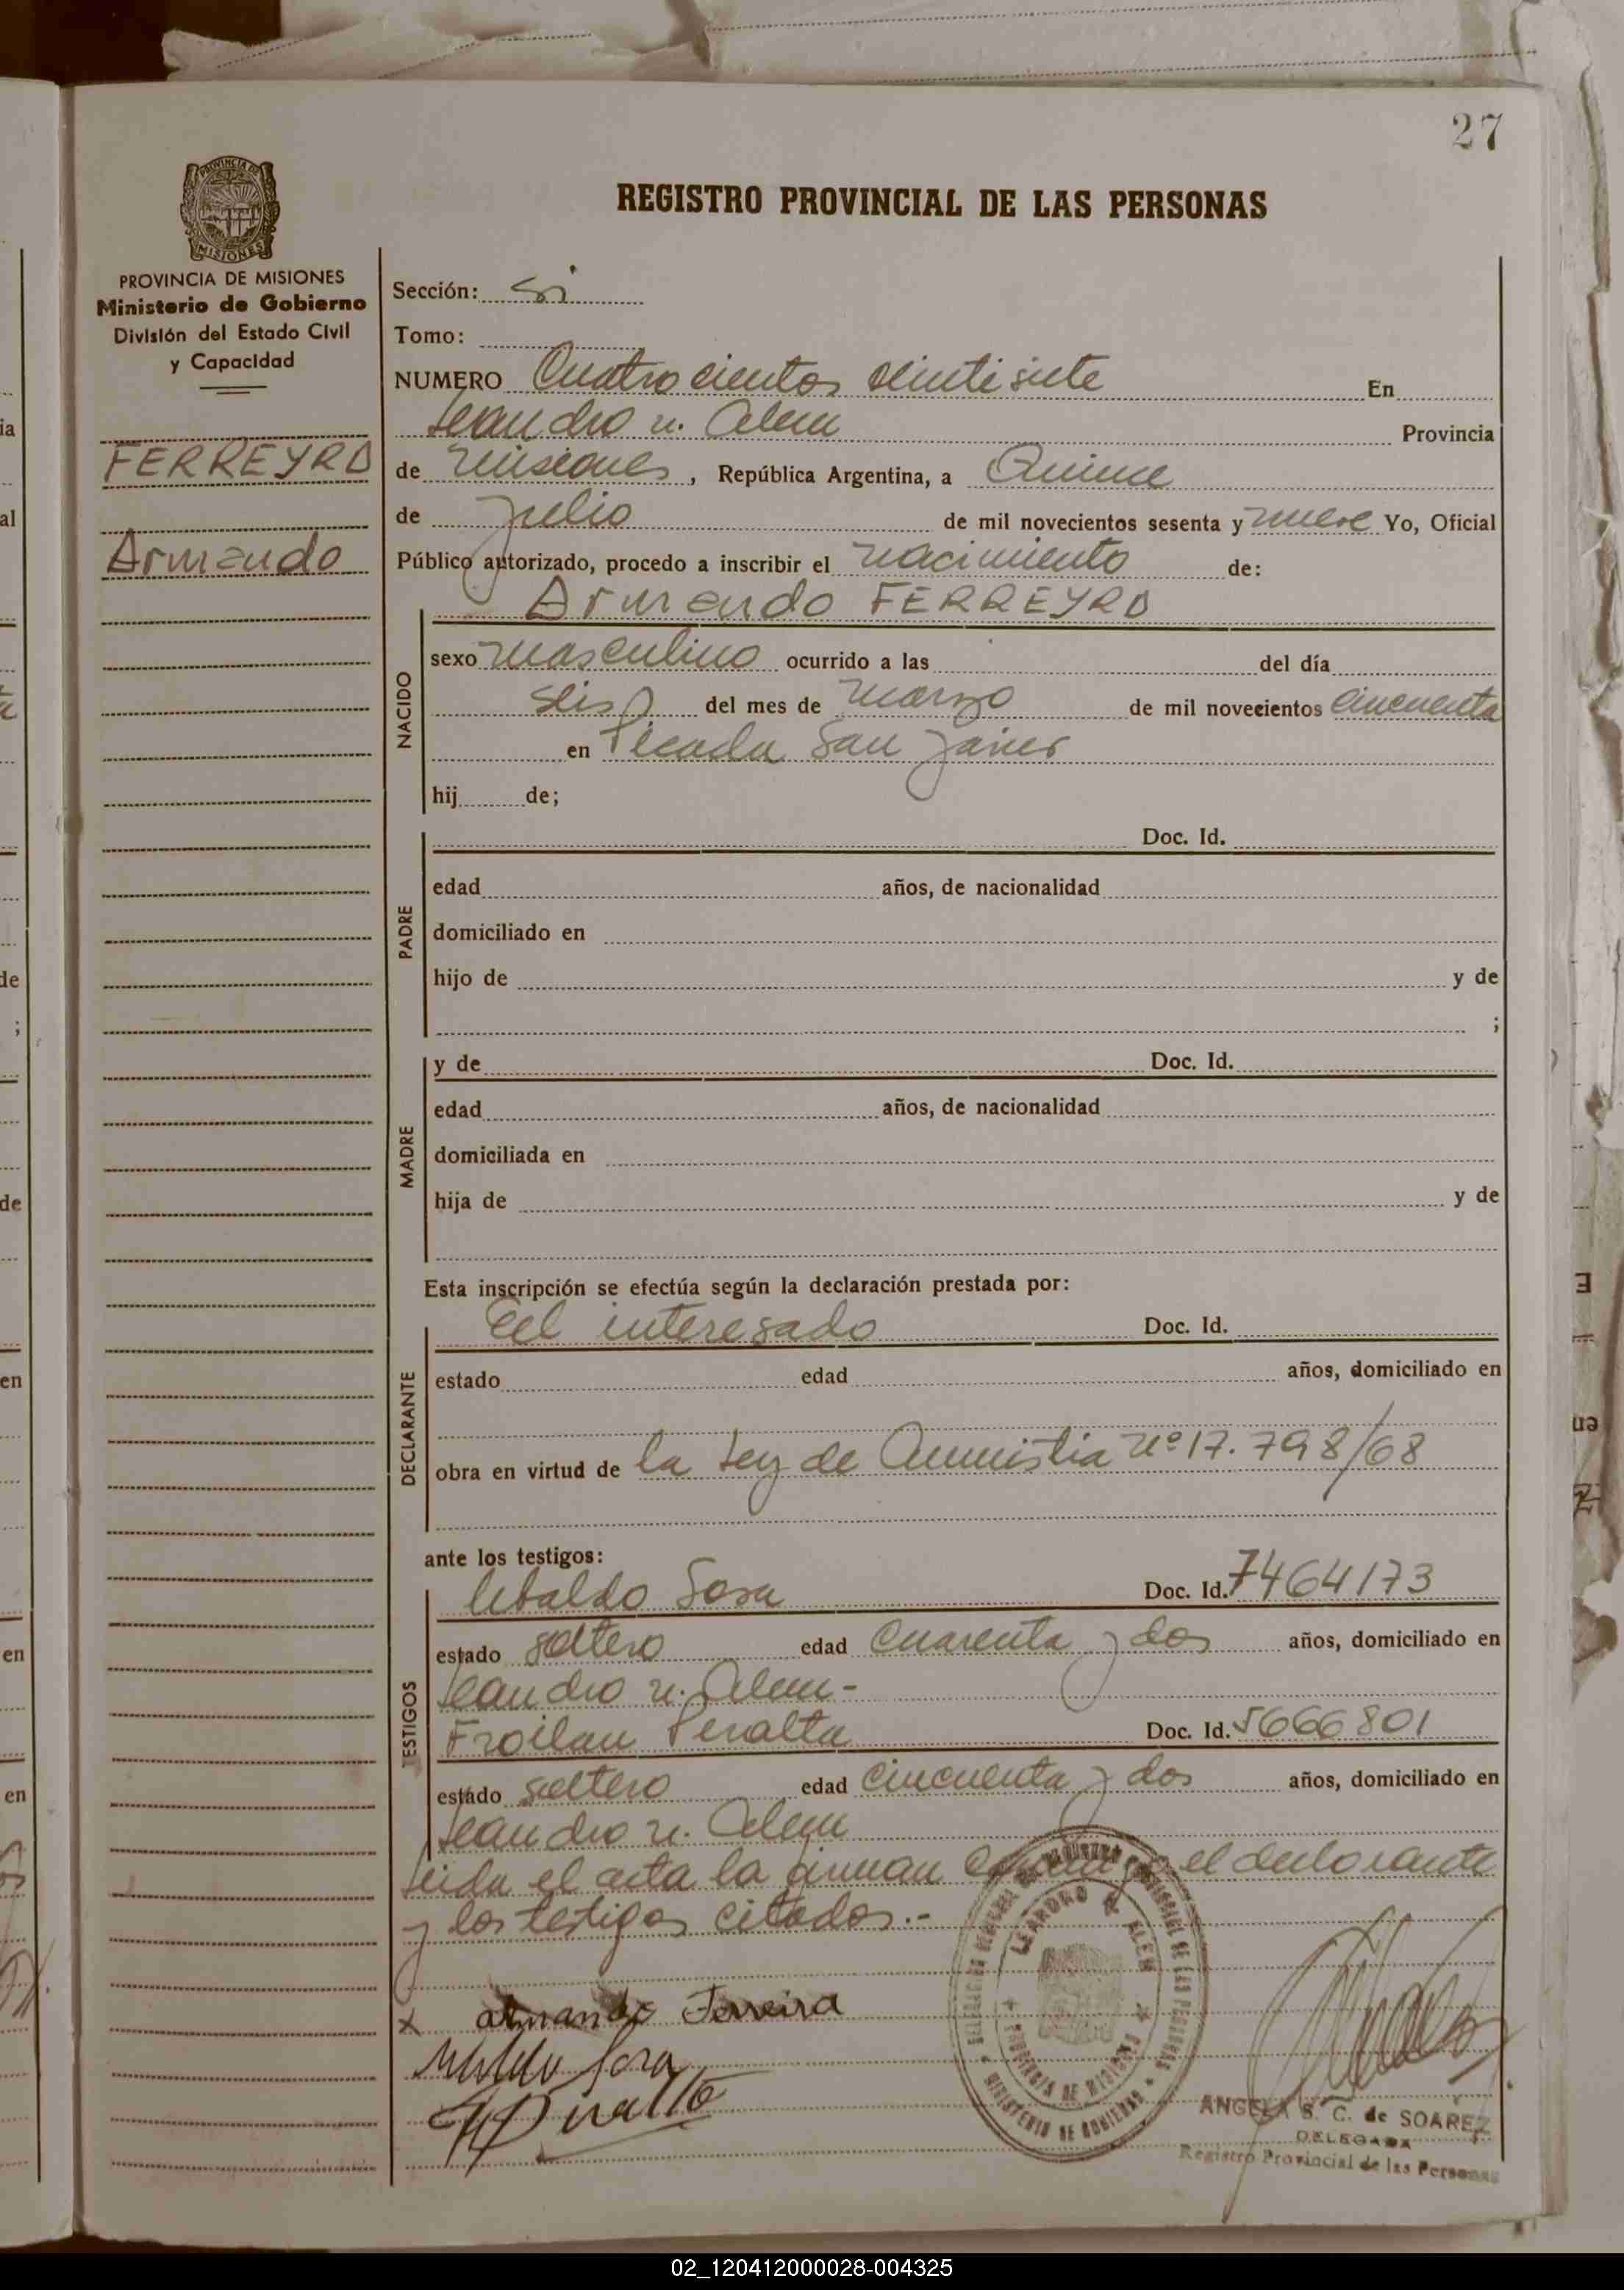 27
PROVINCIA DE
MISIONES
PROVINCIA DE MISIONES
Ministerio de Gobierno
División del Estado Civil
y Capacidad
FERREYRO
Armando
REGISTRO PROVINCIAL DE LAS PERSONAS
Sección:
Tomo:
NUMERO Cuatrocientos veintisiete En
Leandro n. Alem Provincia
de Misiones, República Argentina, a Quince
de Julio de mil novecientos sesenta y nueve Yo, Oficial
Público autorizado, procedo a inscribir el nacimiento de:
Armando FERREYRO
NACIDO
sexo masculino ocurrido a las del día
seis del mes de marzo de mil novecientos cincuenta
en Picada San Javier
hij de;
PADRE
Doc. Id.
edad años, de nacionalidad
domiciliado en
hijo de y de
;
MADRE
y de Doc. Id.
edad años, de nacionalidad
domiciliada en
hija de y de
Esta inscripción se efectúa según la declaración prestada por:
DECLARANTE
El interesado Doc. Id.
estado edad años, domiciliado en
obra en virtud de la Ley de Amnistia nº 17.798/68
ante los testigos:
TESTIGOS
Ubaldo Sosa Doc. Id. 7464173
estado soltero edad cuarenta y dos años, domiciliado en
Leandro n. Alem-
Froilan Peralta Doc. Id. 5666801
estado soltero edad cincuenta y dos años, domiciliado en
Leandro n. Alem
Leida el acta la firman el declarante
y los testigos citados.-
LEANDRO N. ALEM
PROVINCIA DE MISIONES
MINISTERIO DE GOBIERNO
x Armando Ferreira
Ubaldo Sosa
Peralta
ANGELA S. C. de SOAREZ
DELEGADA
Registro Provincial de las Personas
02_120412000028-004325